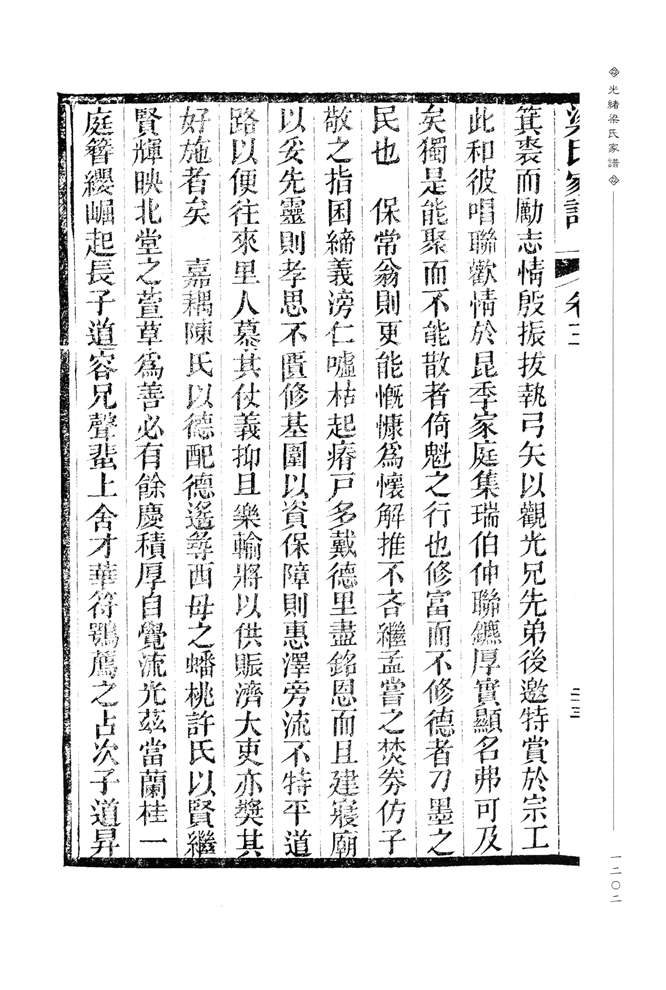 光緒梁氏家譜
一二〇二
梁氏家譜 卷二 三三
箕裘而勵志情殷振拔執弓矢以觀光兄先弟後邀特賞於宗工
此和彼唱聯歡情於昆季家庭集瑞伯仲聯鑣厚實顯名弗可及
矣獨是能聚而不能散者倚魁之行也修富而不修德者刀墨之
民也 保常翁則更能慨慷為懷解推不吝繼孟嘗之焚券仿子
敬之指囷締義滂仁噓枯起瘠戶多戴德里盡銘恩而且建寢廟
以妥先靈則孝思不匱修基圍以資保障則惠澤旁流不特平道
路以便往來里人慕其仗義抑且樂輸將以供賑濟大吏亦獎其
好施者矣 嘉耦陳氏以德配德遙尋西母之蟠桃許氏以賢繼
賢輝映北堂之萱草為善必有餘慶積厚自覺流光茲當蘭桂一
庭簪纓崛起長子道容兄聲蜚上舍才華符鶚薦之占次子道昇